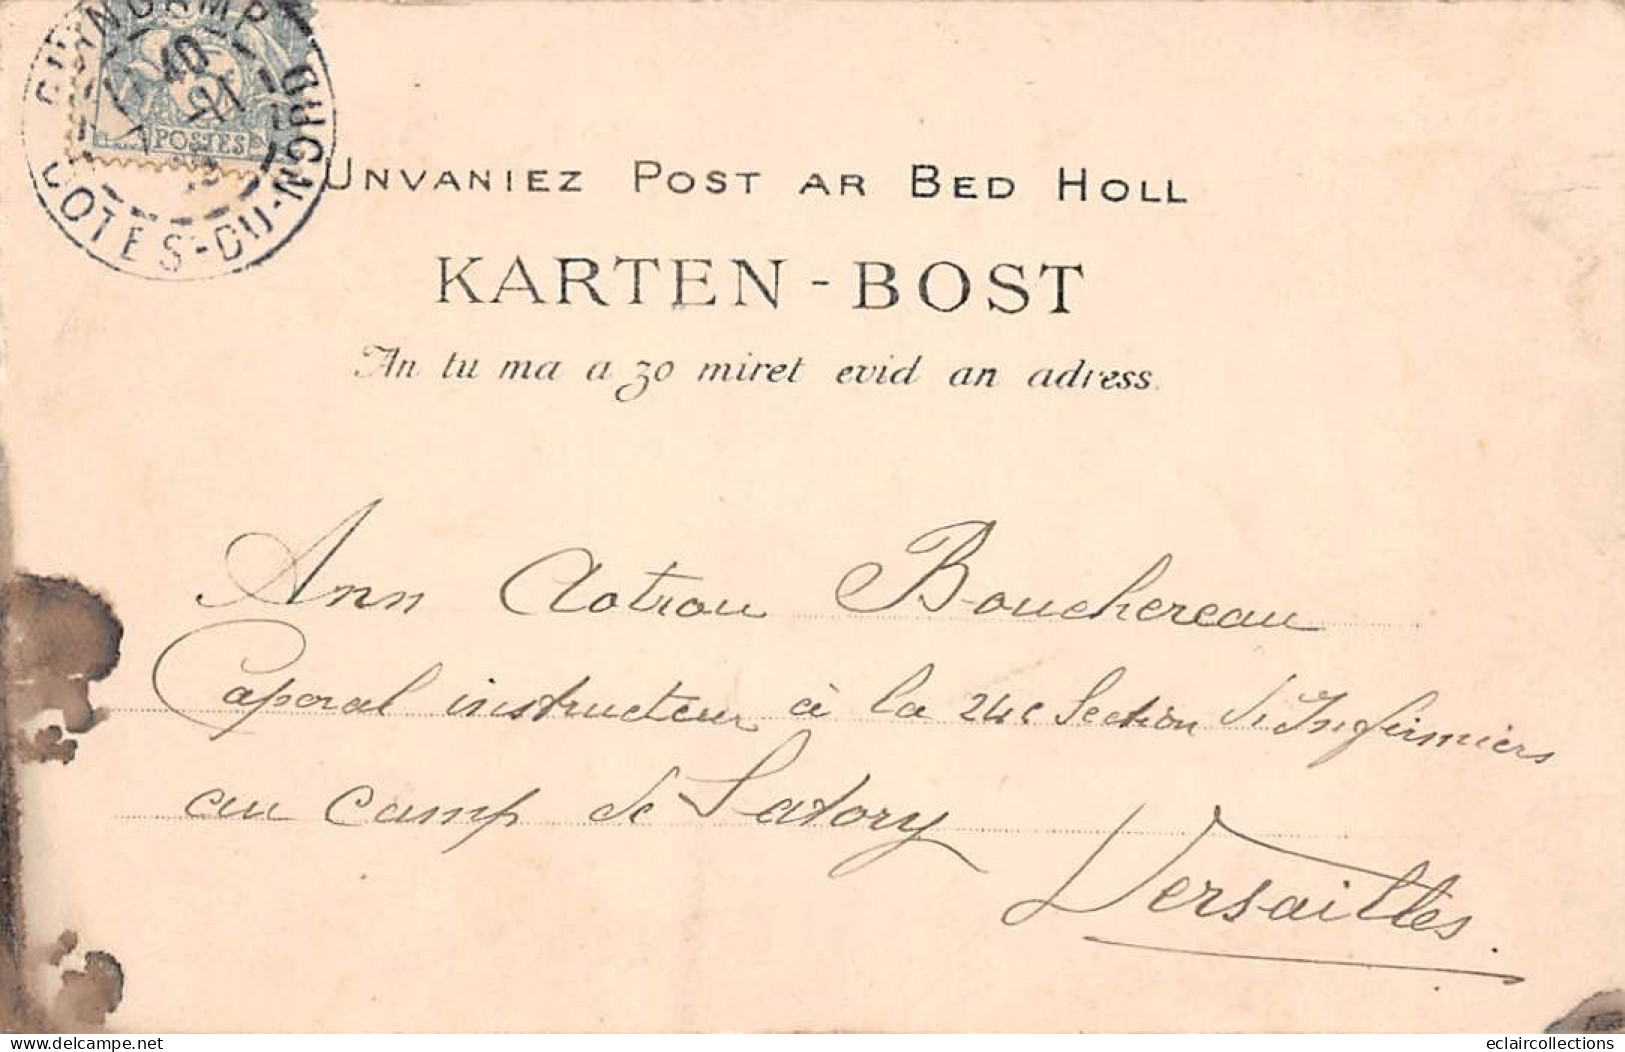 GUINGAMP
COTES-DU-NORD
POSTES
UNVANIEZ POST AR BED HOLL
KARTEN-BOST
An tu ma a zo miret evid an adress.
Ann Aotrou Bouchereau
Caporal instructeur à la 24e Section d'Infirmiers
au camp de Satory
Versailles.
eclaircollections